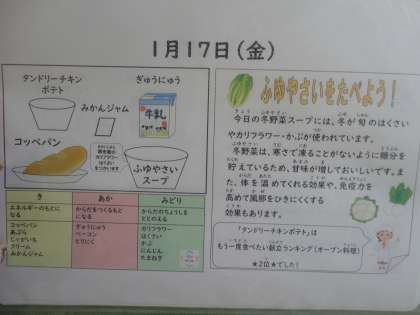 1月17日(金)
タンドリーチキン
ポテト
ぎゅうにゅう
みかんジャム
牛乳
コッペパン
ふゆやさい
スープ
き
あか
みどり
エネルギーのもとに
なる
からだをつくるもと
になる
からだのちょうしを
ととのえる
コッペパン
あぶら
じゃがいも
クリーム
みかんジャム
ぎゅうにゅう
ベーコン
とりにく
カリフラワー
はくさい
かぶ
にんじん
たまねぎ
ふゆやさいをたべよう!
今日の冬野菜スープには、冬が旬のはくさい
やカリフラワー・かぶが使われています。
冬野菜は、寒さで凍ることがないように糖分を
貯えているため、甘味が増しておいしいです。ま
た、体を温めてくれる効果や、免疫力を
高めて風邪をひきにくくする
効果もあります。
「タンドリーチキンポテト」は
もう一度食べたい献立ランキング(オーブン料理)
★2位★でした!